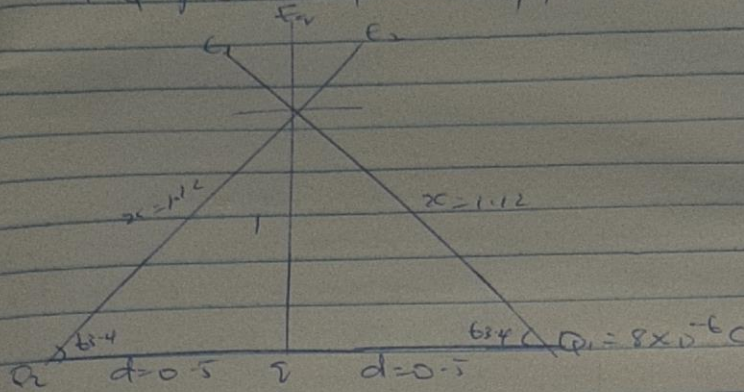 E₁ E₂
x = 1.12 x = 1.12
1
63.4 63.4 Q₁ = 8 × 10⁻⁶ C
Q₂ d = 0.5 d = 0.5